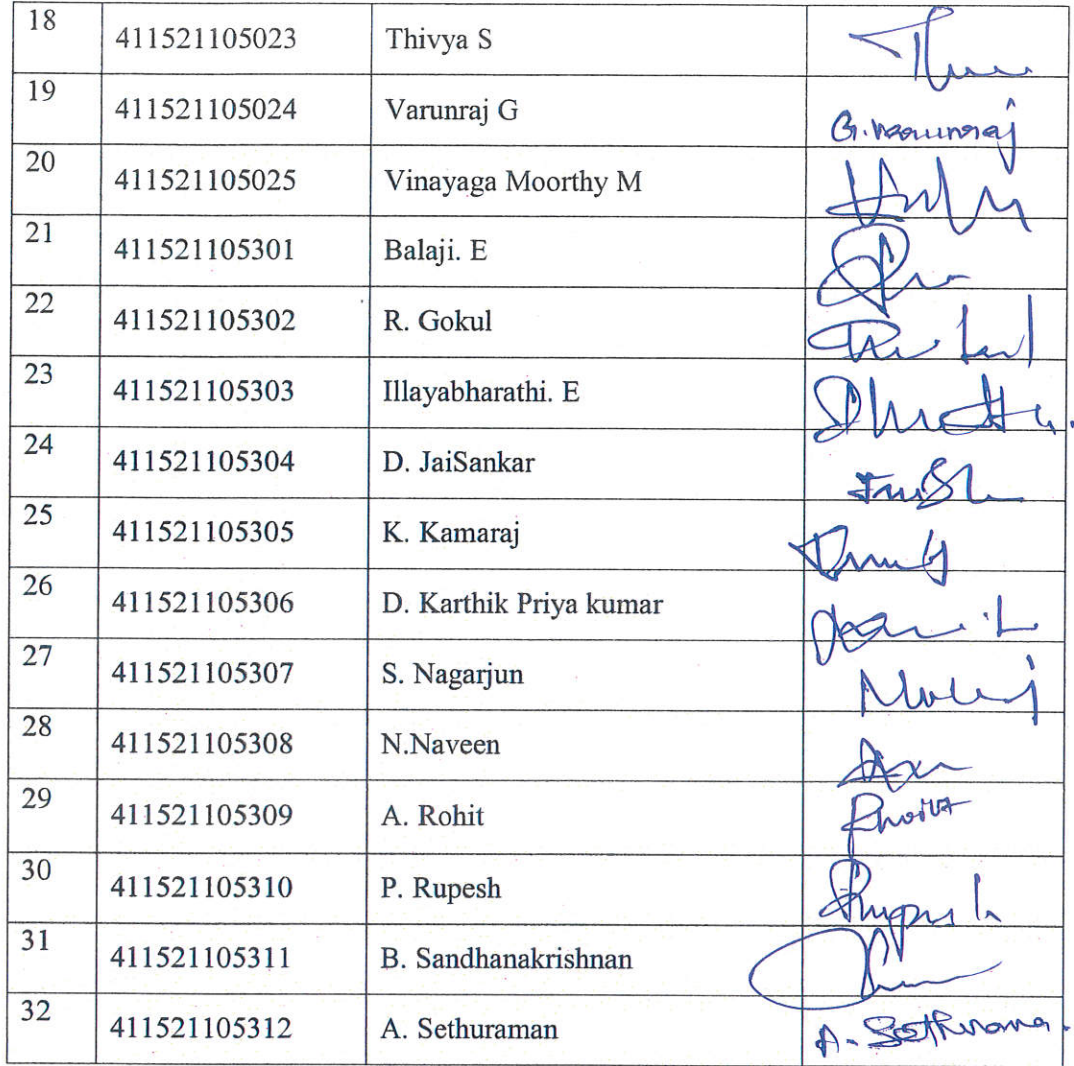 18 411521105023 Thivya S
19 411521105024 Varunraj G G. Varunraj
20 411521105025 Vinayaga Moorthy M
21 411521105301 Balaji. E
22 411521105302 R. Gokul
23 411521105303 Illayabharathi. E
24 411521105304 D. JaiSankar
25 411521105305 K. Kamaraj
26 411521105306 D. Karthik Priya kumar
27 411521105307 S. Nagarjun
28 411521105308 N.Naveen
29 411521105309 A. Rohit
30 411521105310 P. Rupesh
31 411521105311 B. Sandhanakrishnan
32 411521105312 A. Sethuraman